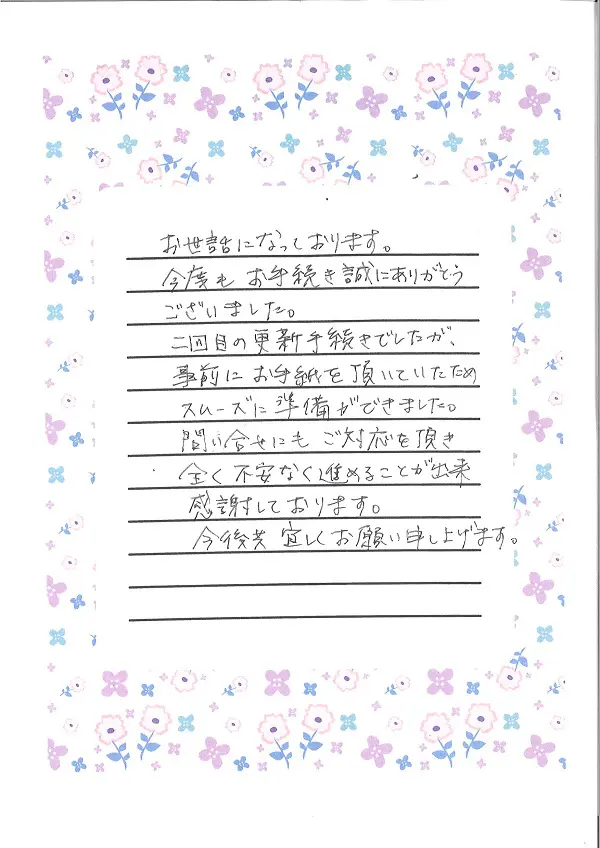 お世話になっております。
今度も お手続き誠にありがとう
ございました。
二回目の更新手続きでしたが、
事前にお手紙を頂いていたため
スムーズに準備ができました。
問い合せにもご対応を頂き
全く不安なく進めることが出来
感謝しております。
今後共 宜しくお願い申し上げます。